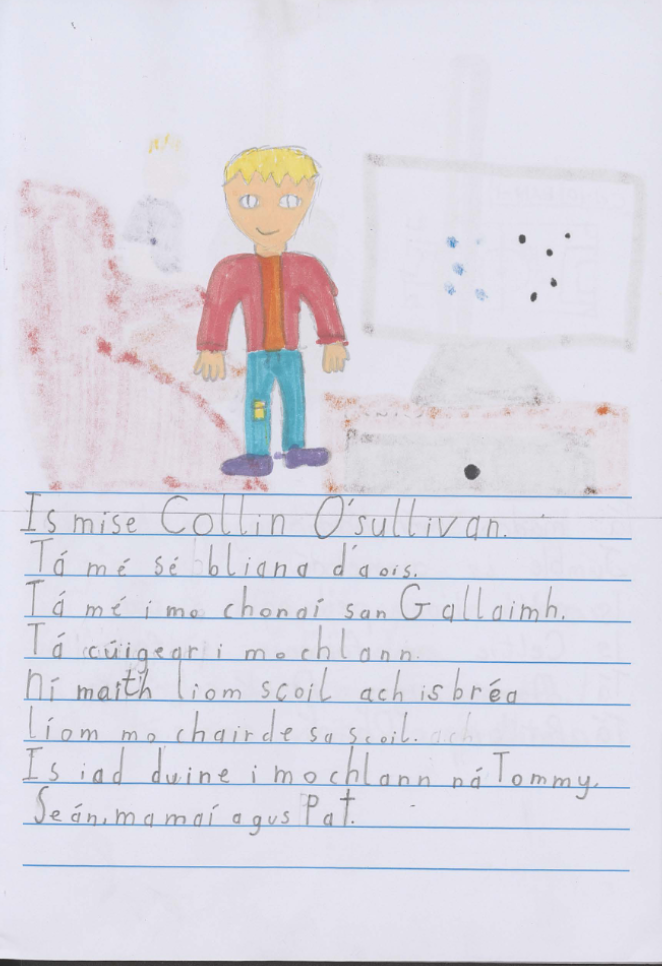 Is mise Collin O'sullivan.
Tá mé sé bliana d'aois.
Tá mé i mo chonaí san Gallaimh.
Tá cúigear i mo chlann.
Ní maith liom scoil ach is bréa
liom mo chairde sa scoil.
Is iad duine i mo chlann ná Tommy,
Seán, mamaí agus Pat.